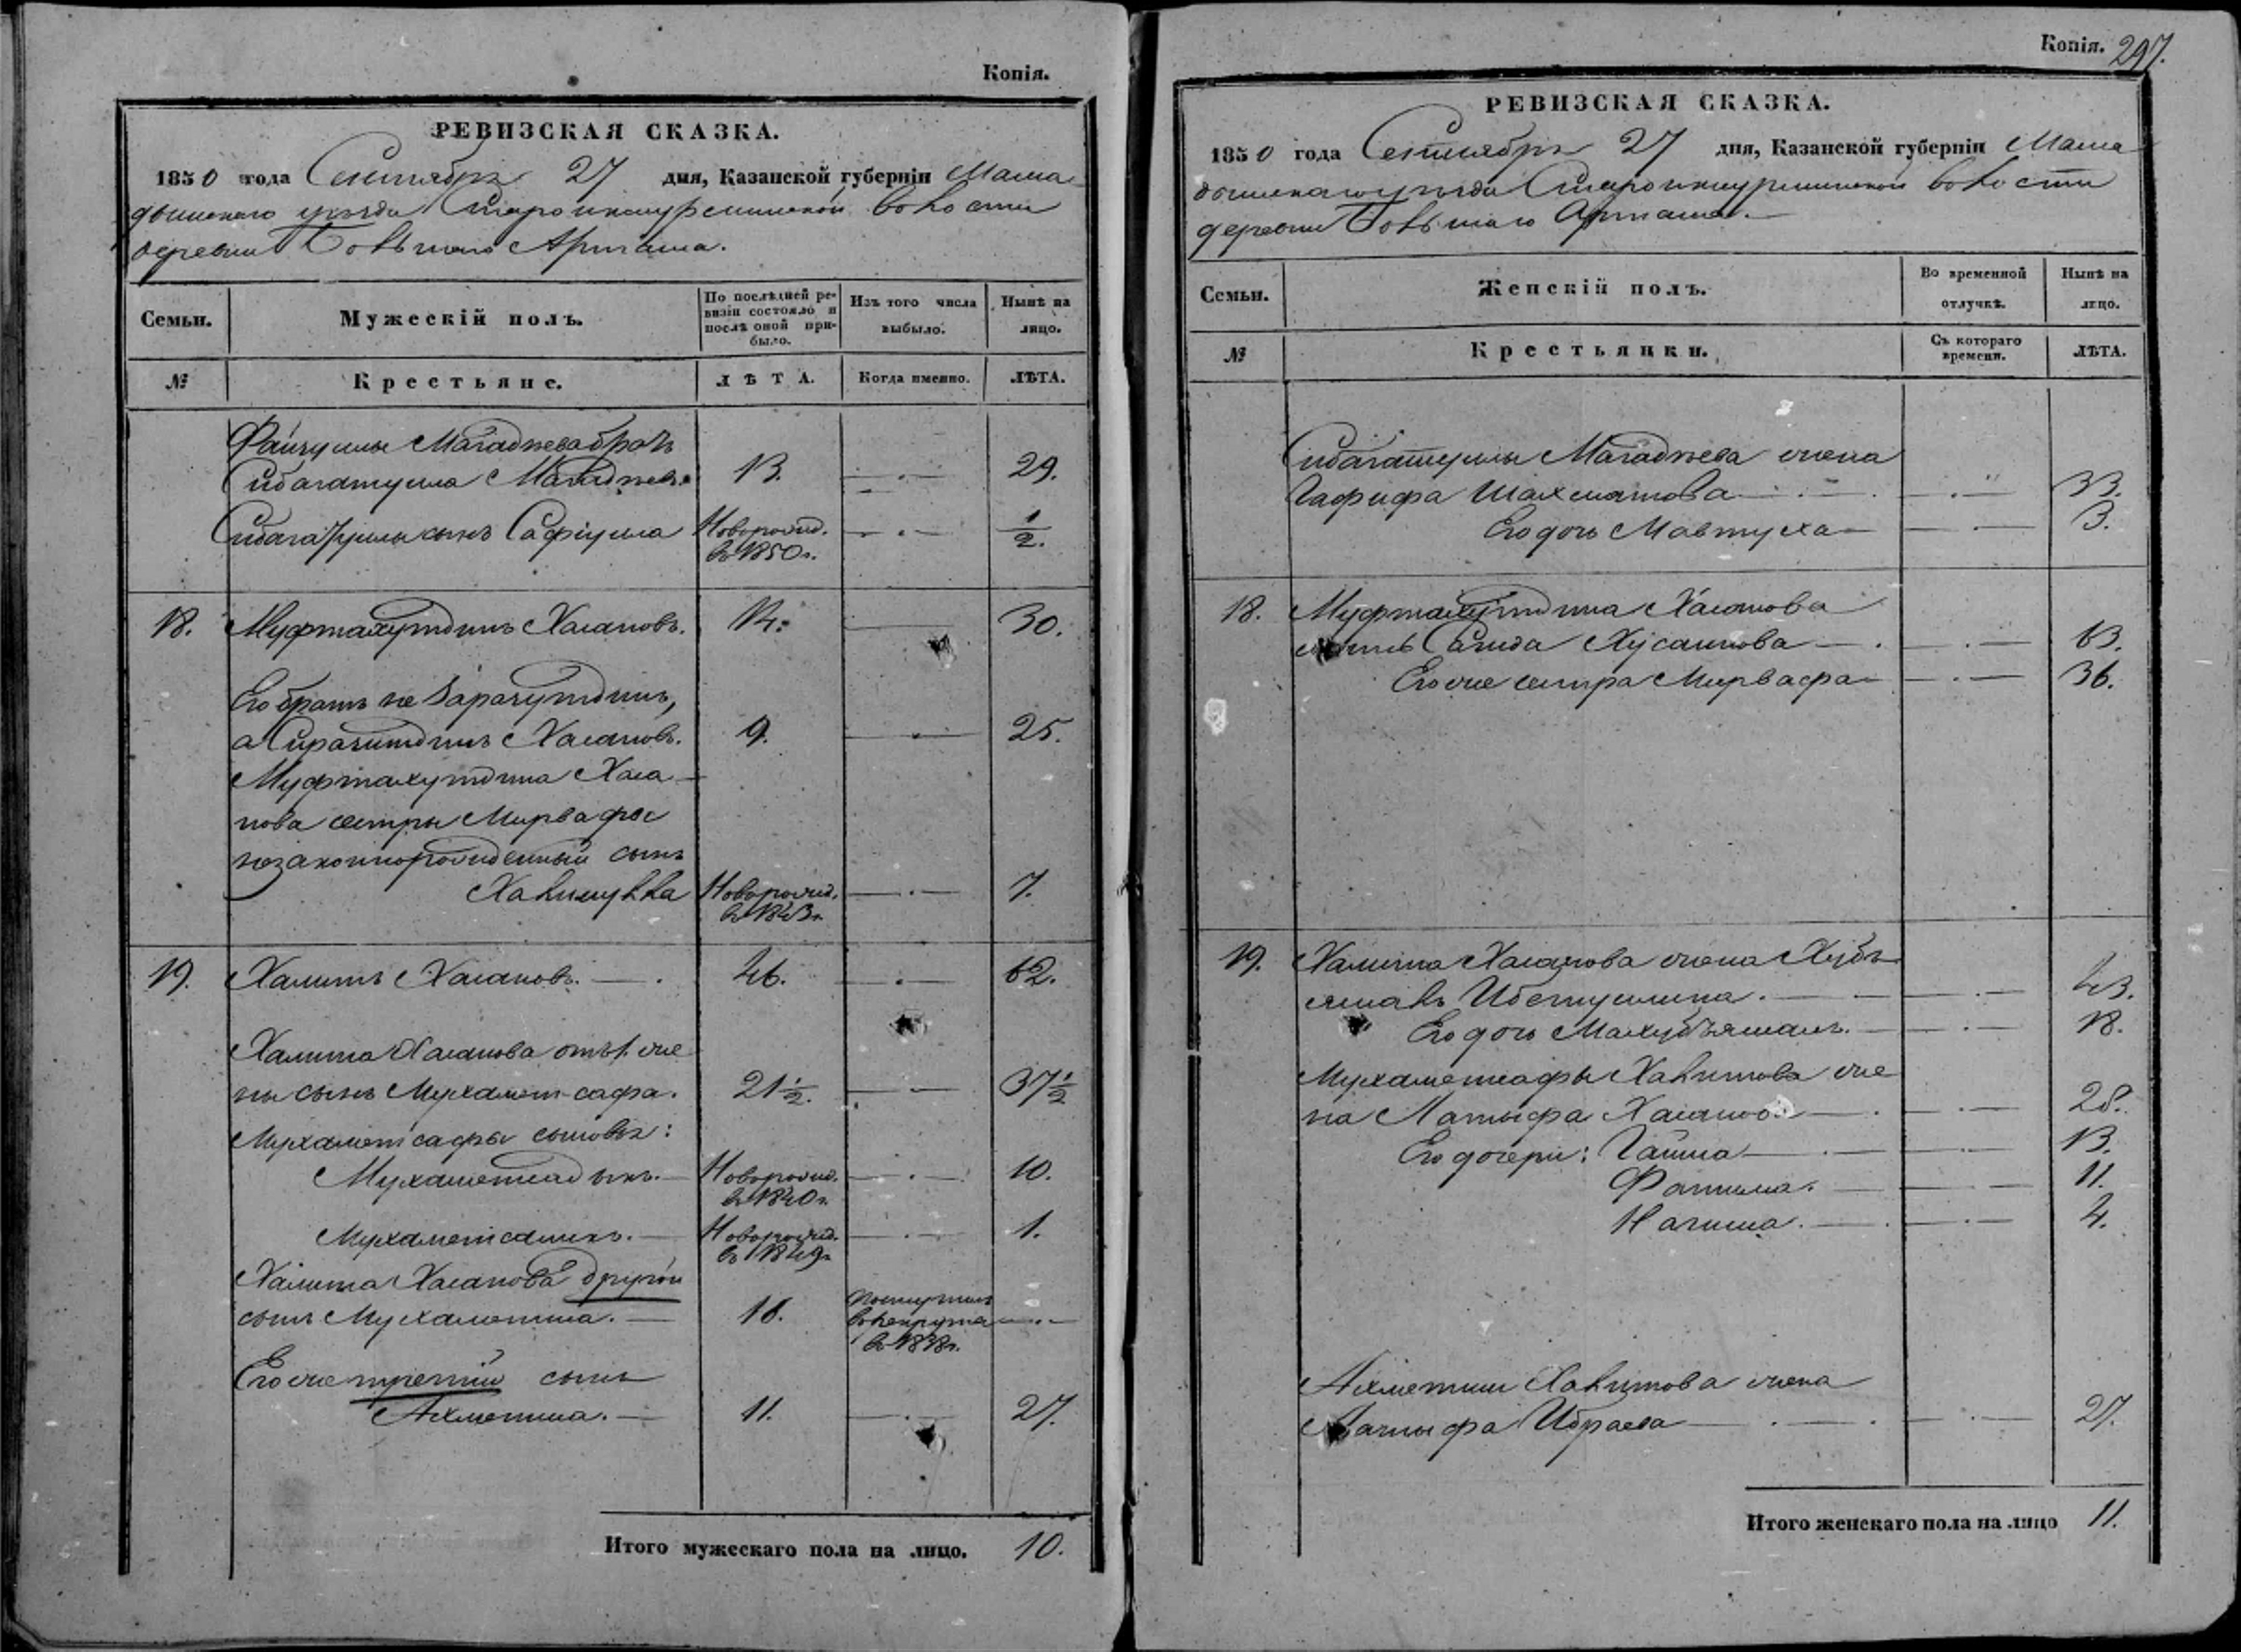 Копія.
РЕВИЗСКАЯ СКАЗКА.
1850 года Сентября 27 дня, Казанской губерніи Мама
дышскаго уѣзда Староикшурминской волости
деревни Большаго Арташа.
Семьи.
Мужескій полъ.
По послѣдней ре-
визіи состояло и
послѣ оной при-
было.
Изъ того числа
выбыло.
Нынѣ на
лицо.
№
Крестьяне.
ЛѢТА.
Когда именно.
ЛѢТА.
Магадѣева братъ
Сибагатулла Магадѣевъ 13. 29.
Сибагатуллы сынъ Сафіулла Новорожд. 1/2.
въ 1850 г.
18. Муфтахутдинъ Хасановъ. 14. 30.
Его братъ не Зарачутдинъ,
а Сирачитдинъ Хасановъ. 9. 25.
Муфтахутдина Хаса
нова сестры Мирвафы
незаконнорожденный сынъ
Халиулла Новорожд. 7.
въ 1843 г.
19. Халитъ Хасановъ. 46. 62.
Халита Хасанова отъ 1 же
ны сынъ Мухаметсафа. 21 1/2. 37 1/2
Мухаметсафы сыновья:
Мухаметсадыкъ. Новорожд. 10.
въ 1840 г.
Мухаметсалихъ. Новорожд. 1.
въ 1849 г.
Халита Хасанова другой
сынъ Мухаметша. 16. поступилъ
въ рекрута
въ 1838 г.
Его же третій сынъ
Ахметша. 11. 27.
Итого мужескаго пола на лицо. 10.
Копія. 297.
РЕВИЗСКАЯ СКАЗКА.
1850 года Сентября 27 дня, Казанской губерніи Мама
дышскаго уѣзда Староикшурминской волости
деревни Большаго Арташа.
Семьи.
Женскій полъ.
Во временной
отлучкѣ.
Нынѣ на
лицо.
№
Крестьянки.
Съ котораго
времени.
ЛѢТА.
Сибагатуллы Магадѣева жена
Гафифа Шахметова 33.
Его дочь Мавтуха 3.
18. Муфтахутдина Хасанова
мать Сагида Хусаинова 63.
Его же сестра Мирвафа 36.
19. Халита Хасанова жена Хубъ
ямалъ Ибетуллина. 43.
Его дочь Махубъямалъ. 18.
Мухаметсафы Халитова же
на Латыфа Хасанова 28.
Его дочери: Гайша 13.
Фатима. 11.
Нагима. 4.
Ахметши Халитова жена
Ибраева 27.
Итого женскаго пола на лицо 11.